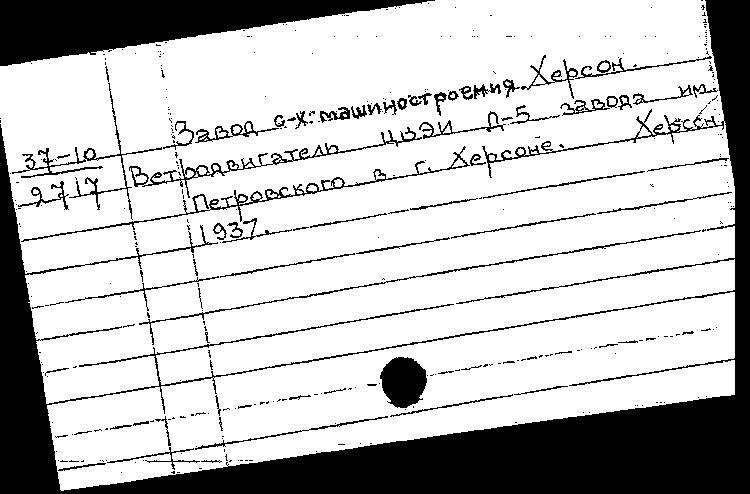 Завод с-х. машиностроения. Херсон.
37-10
2717
Ветродвигатель ЦВЭИ Д-5 завода им.
Петровского в г. Херсоне. Херсон,
1937.